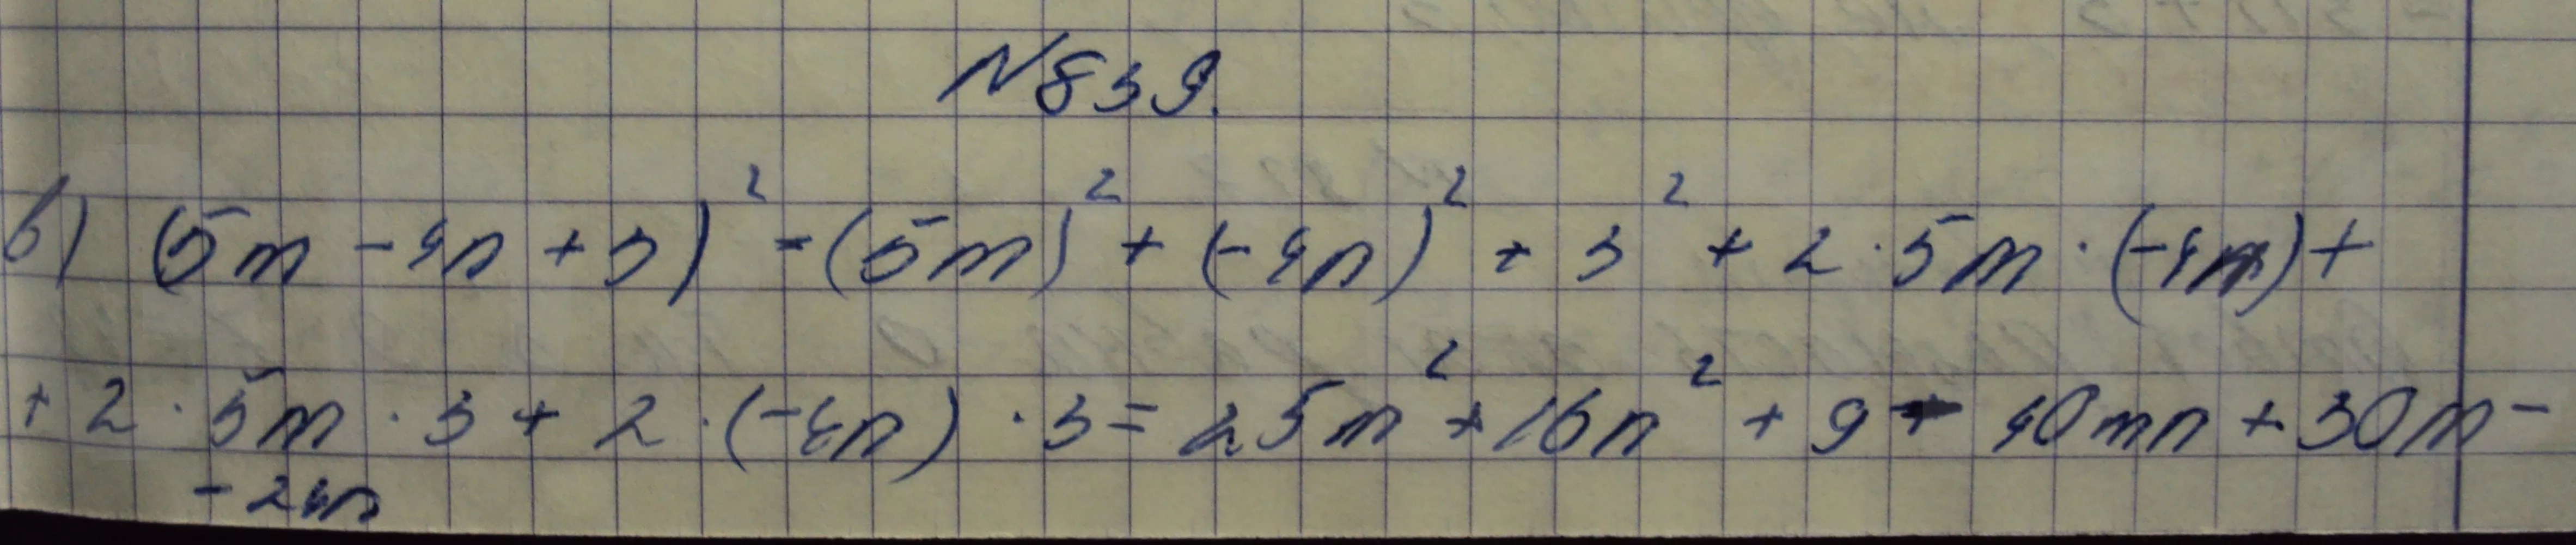 N 839.
в) (5m - 4n + 3)² = (5m)² + (-4n)² + 3² + 2 · 5m · (-4n) +
+ 2 · 5m · 3 + 2 · (-4n) · 3 = 25m² + 16n² + 9 - 40mn + 30m -
- 24n